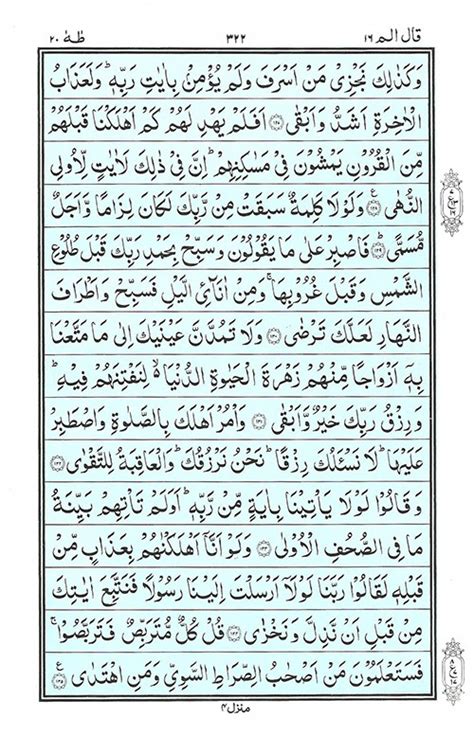 قال الم ١٦ ٣٢٢ طٰهٰ ٢٠
وَكَذٰلِكَ نَجْزِیْ مَنْ اَسْرَفَ وَلَمْ یُؤْمِنْۢ بِاٰیٰتِ رَبِّهٖ ؕ وَلَعَذَابُ
الْاٰخِرَةِ اَشَدُّ وَاَبْقٰی ﴿۱۲۷﴾ اَفَلَمْ یَهْدِ لَهُمْ كَمْ اَهْلَكْنَا قَبْلَهُمْ
مِّنَ الْقُرُوْنِ یَمْشُوْنَ فِیْ مَسٰكِنِهِمْ ؕ اِنَّ فِیْ ذٰلِكَ لَاٰیٰتٍ لِّاُولِی
النُّهٰی ﴿۱۲۸﴾ وَلَوْلَا كَلِمَةٌ سَبَقَتْ مِنْ رَّبِّكَ لَكَانَ لِزَامًا وَّاَجَلٌ
مُّسَمًّی ﴿۱۲۹﴾ فَاصْبِرْ عَلٰی مَا یَقُوْلُوْنَ وَسَبِّحْ بِحَمْدِ رَبِّكَ قَبْلَ طُلُوْعِ
الشَّمْسِ وَقَبْلَ غُرُوْبِهَا ۚ وَمِنْ اٰنَآئِ الَّیْلِ فَسَبِّحْ وَاَطْرَافَ
النَّهَارِ لَعَلَّكَ تَرْضٰی ﴿۱۳۰﴾ وَلَا تَمُدَّنَّ عَیْنَیْكَ اِلٰی مَا مَتَّعْنَا
بِهٖۤ اَزْوَاجًا مِّنْهُمْ زَهْرَةَ الْحَیٰوةِ الدُّنْیَا ۙ لِنَفْتِنَهُمْ فِیْهِ ؕ
وَرِزْقُ رَبِّكَ خَیْرٌ وَّاَبْقٰی ﴿۱۳۱﴾ وَاْمُرْ اَهْلَكَ بِالصَّلٰوةِ وَاصْطَبِرْ
عَلَیْهَا ؕ لَا نَسْـَٔلُكَ رِزْقًا ؕ نَحْنُ نَرْزُقُكَ ؕ وَالْعَاقِبَةُ لِلتَّقْوٰی ﴿۱۳۲﴾
وَقَالُوْا لَوْلَا یَاْتِیْنَا بِاٰیَةٍ مِّنْ رَّبِّهٖ ؕ اَوَلَمْ تَاْتِهِمْ بَیِّنَةُ
مَا فِی الصُّحُفِ الْاُوْلٰی ﴿۱۳۳﴾ وَلَوْ اَنَّاۤ اَهْلَكْنٰهُمْ بِعَذَابٍ مِّنْ
قَبْلِهٖ لَقَالُوْا رَبَّنَا لَوْلَاۤ اَرْسَلْتَ اِلَیْنَا رَسُوْلًا فَنَتَّبِعَ اٰیٰتِكَ
مِنْ قَبْلِ اَنْ نَّذِلَّ وَنَخْزٰی ﴿۱۳۴﴾ قُلْ كُلٌّ مُّتَرَبِّصٌ فَتَرَبَّصُوْا ۚ
فَسَتَعْلَمُوْنَ مَنْ اَصْحٰبُ الصِّرَاطِ السَّوِیِّ وَمَنِ اهْتَدٰی ﴿۱۳۵﴾
منزل ۴